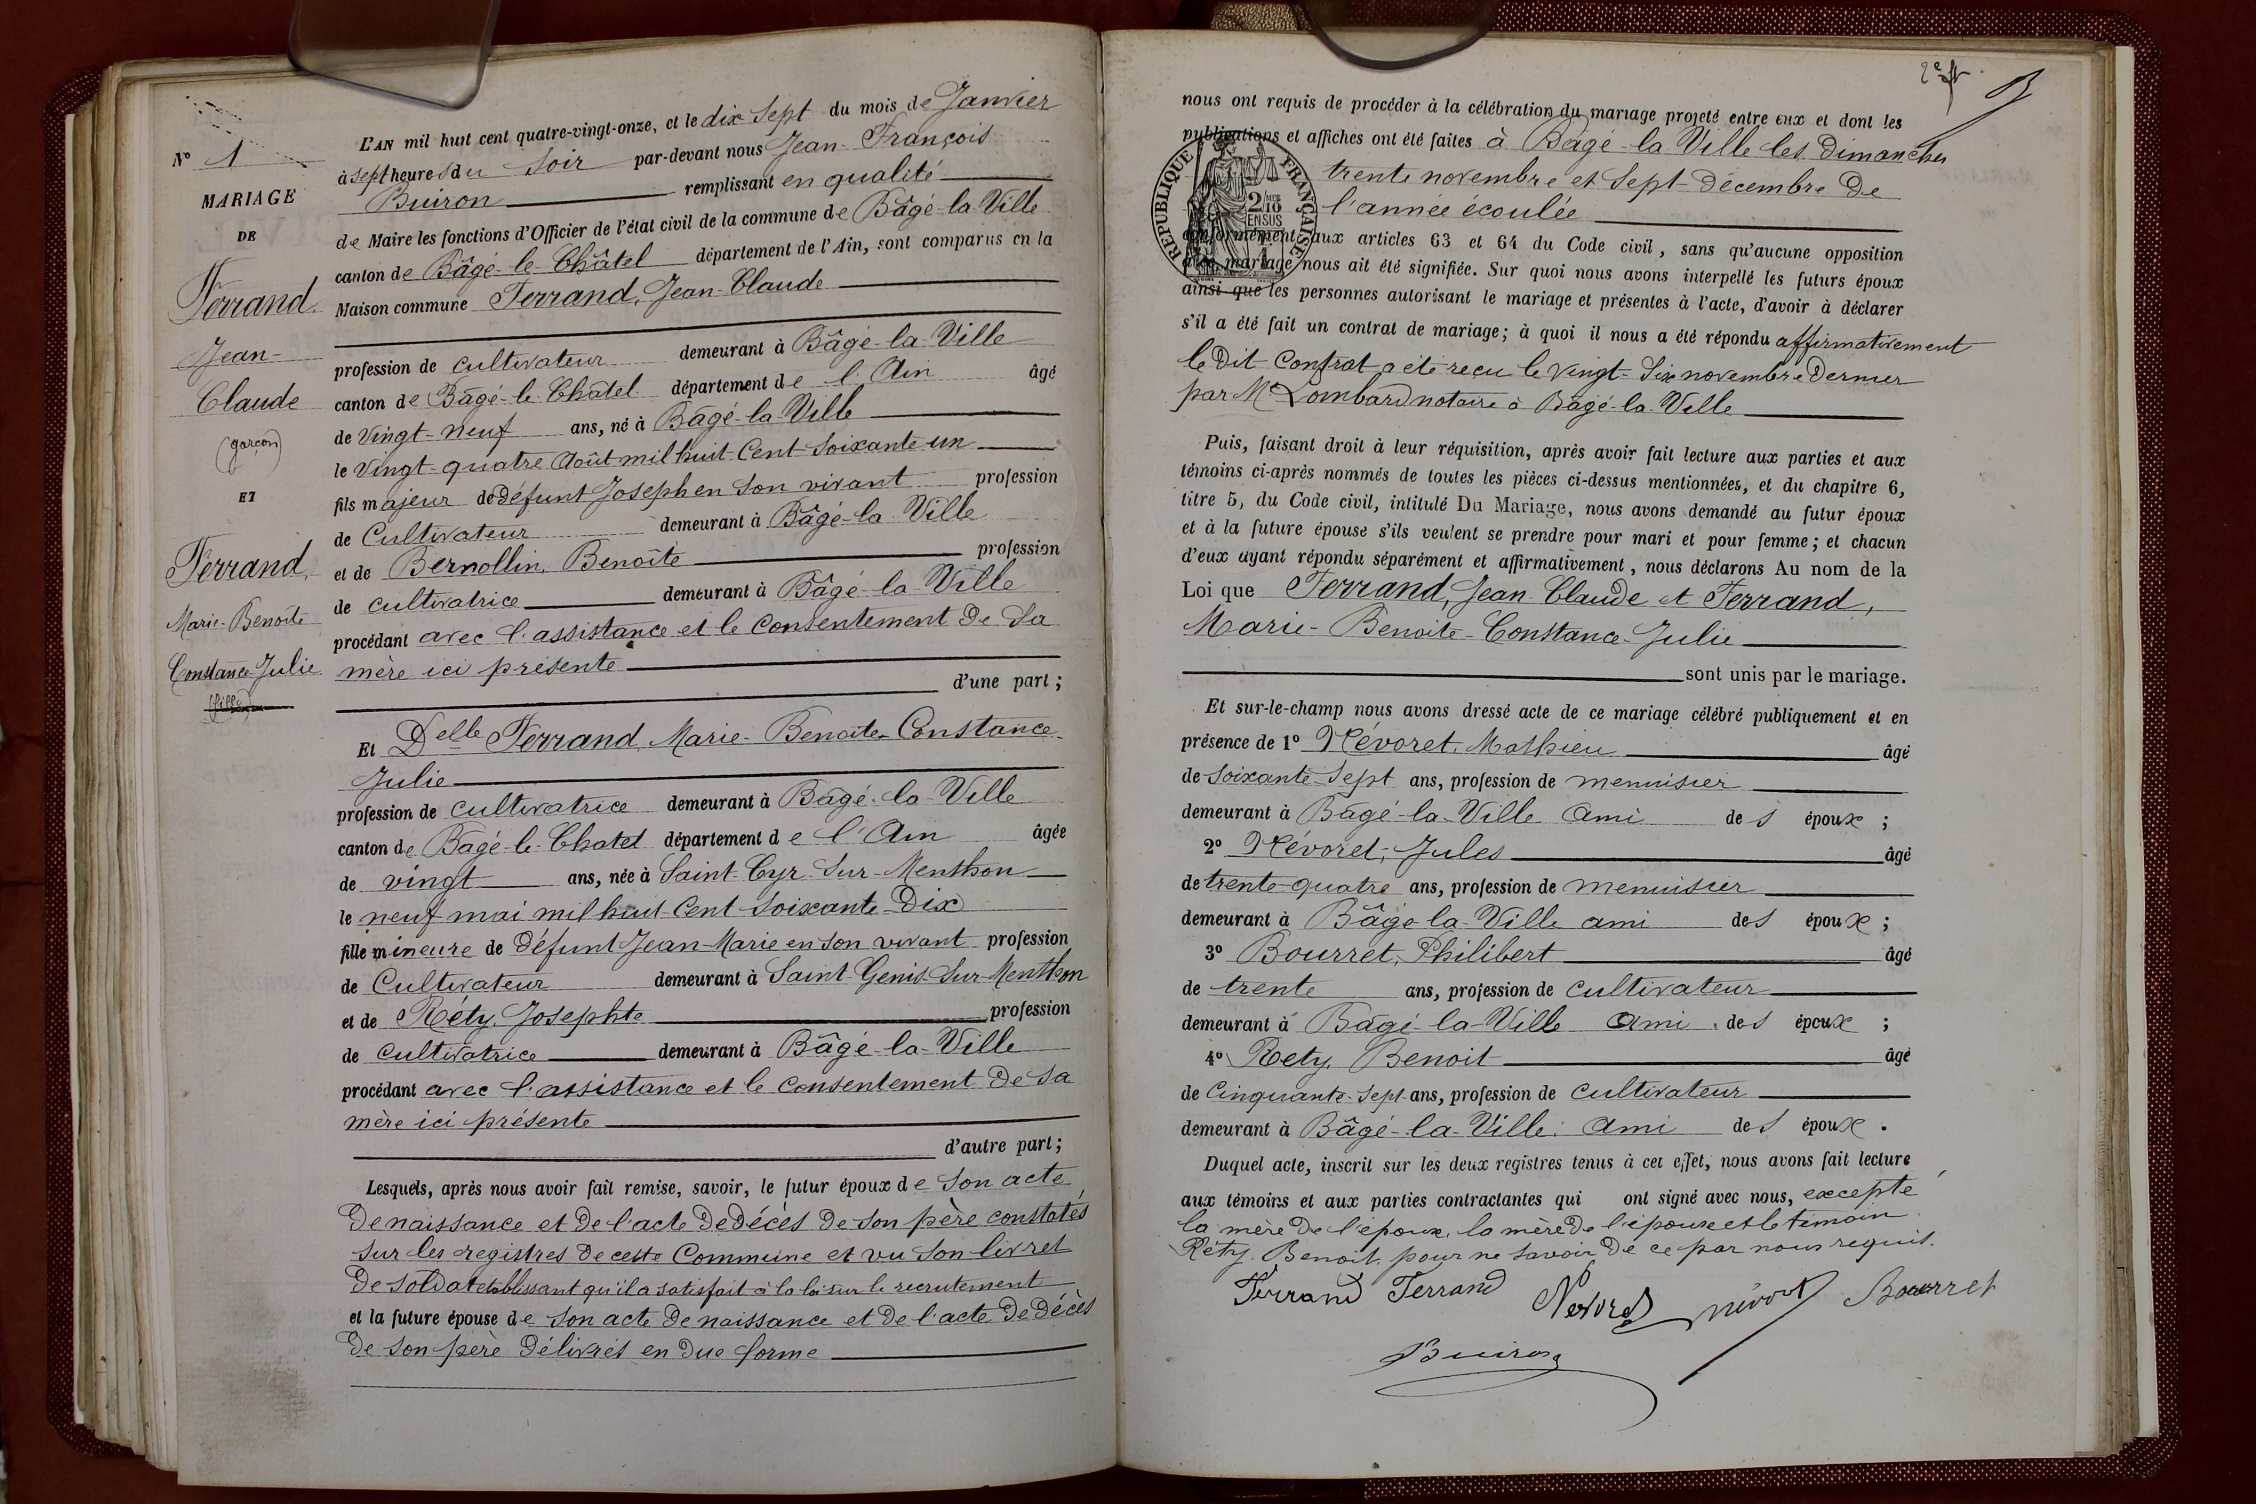 N° 1
MARIAGE
DE
Ferrand
Jean-
Claude
(garçon)
ET
Ferrand,
Marie-Benoîte
Constance-Julie
(fille)
L'AN mil huit cent quatre-vingt-onze, et le dix Sept du mois de Janvier
à sept heures du Soir par-devant nous Jean-François
Buiron remplissant en qualité
de Maire les fonctions d'Officier de l'état civil de la commune de Bâgé-la-Ville
canton de Bâgé-le-Châtel département de l'Ain, sont comparus en la
Maison commune Ferrand, Jean-Claude
profession de cultivateur demeurant à Bâgé-la-Ville
canton de Bâgé-le-Châtel département de l'Ain âgé
de Vingt-neuf ans, né à Bâgé-la-Ville
le Vingt-quatre Août mil huit-Cent-Soixante-un
fils majeur de défunt Joseph en Son vivant profession
de Cultivateur demeurant à Bâgé-la-Ville
et de Bernollin, Benoîte profession
de cultivatrice demeurant à Bâgé-la-Ville
procédant avec l'assistance et le Consentement De Sa
mère ici présente
d'une part;
Et Delle Ferrand, Marie-Benoîte-Constance-
Julie
profession de cultivatrice demeurant à Bâgé-la-Ville
canton de Bâgé-le-Chatel département de l'Ain âgée
de vingt ans, née à Saint-Cyr-Sur-Menthon
le neuf mai mil huit-Cent-Soixante-Dix
fille mineure de Défunt Jean-Marie en Son vivant profession
de Cultivateur demeurant à Saint-Genis-Sur-Menthon
et de Réty, Josephte profession
de cultivatrice demeurant à Bâgé-la-Ville
procédant avec l'assistance et le Consentement De Sa
mère ici présente
d'autre part;
Lesquels, après nous avoir fait remise, savoir, le futur époux de Son acte
De naissance et De l'acte De Décès De Son père constatés
Sur les registres De cette Commune et vu Son livret
De Soldat établissant qu'il a satisfait à la loi sur le recrutement
et la future épouse de Son acte De naissance et De l'acte De Décès
De Son père Délivrés en Due forme
2e ft
nous ont requis de procéder à la célébration du mariage projeté entre eux et dont les
publications et affiches ont été faites à Bâgé-la-Ville les Dimanches
trente novembre et Sept-Décembre De
l'année écoulée
RÉPUBLIQUE FRANÇAISE
2/10
EN SUS
conformément aux articles 63 et 64 du Code civil, sans qu'aucune opposition
au mariage nous ait été signifiée. Sur quoi nous avons interpellé les futurs époux
ainsi que les personnes autorisant le mariage et présentes à l'acte, d'avoir à déclarer
s'il a été fait un contrat de mariage; à quoi il nous a été répondu affirmativement
le Dit Contrat a été reçu le Vingt-Six novembre Dernier
par Me Lombard notaire à Bâgé-la-Ville
Puis, faisant droit à leur réquisition, après avoir fait lecture aux parties et aux
témoins ci-après nommés de toutes les pièces ci-dessus mentionnées, et du chapitre 6,
titre 5, du Code civil, intitulé Du Mariage, nous avons demandé au futur époux
et à la future épouse s'ils veulent se prendre pour mari et pour femme; et chacun
d'eux ayant répondu séparément et affirmativement, nous déclarons Au nom de la
Loi que Ferrand, Jean-Claude et Ferrand,
Marie-Benoîte-Constance-Julie
sont unis par le mariage.
Et sur-le-champ nous avons dressé acte de ce mariage célébré publiquement et en
présence de 1° Névoret, Mathieu âgé
de Soixante-Sept ans, profession de menuisier
demeurant à Bâgé-la-Ville Ami des époux;
2° Névoret, Jules âgé
de trente-quatre ans, profession de menuisier
demeurant à Bâgé-la-Ville ami des époux;
3° Bourret, Philibert âgé
de trente ans, profession de cultivateur
demeurant à Bâgé-la-Ville Ami des époux;
4° Réty, Benoit âgé
de Cinquante-Sept ans, profession de cultivateur
demeurant à Bâgé-la-Ville Ami des époux.
Duquel acte, inscrit sur les deux registres tenus à cet effet, nous avons fait lecture
aux témoins et aux parties contractantes qui ont signé avec nous, excepté
la mère De l'époux, la mère De l'épouse et le témoin
Réty, Benoit, pour ne Savoir De ce par nous requis.
Ferrand Ferrand Névoret Névoret Bourret
Buiron